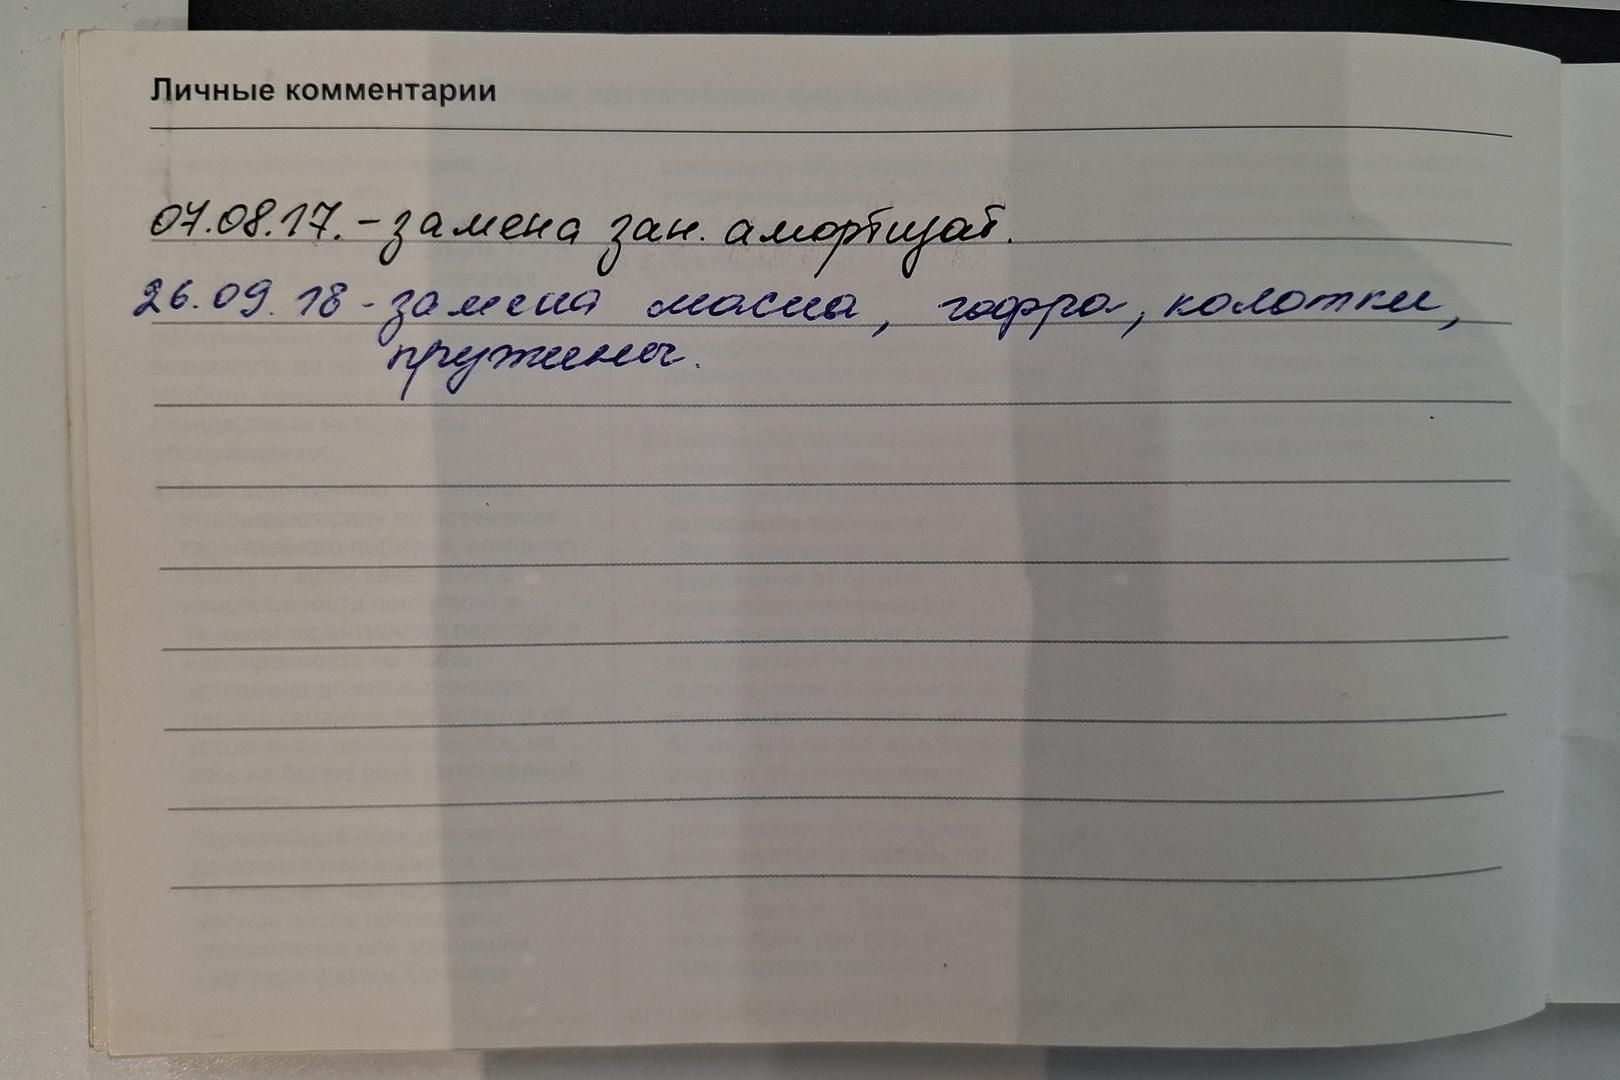 Личные комментарии
07.08.17. - замена зан. амортизат.
26.09.18 - замена масла, гофра, колотки,
пружины.